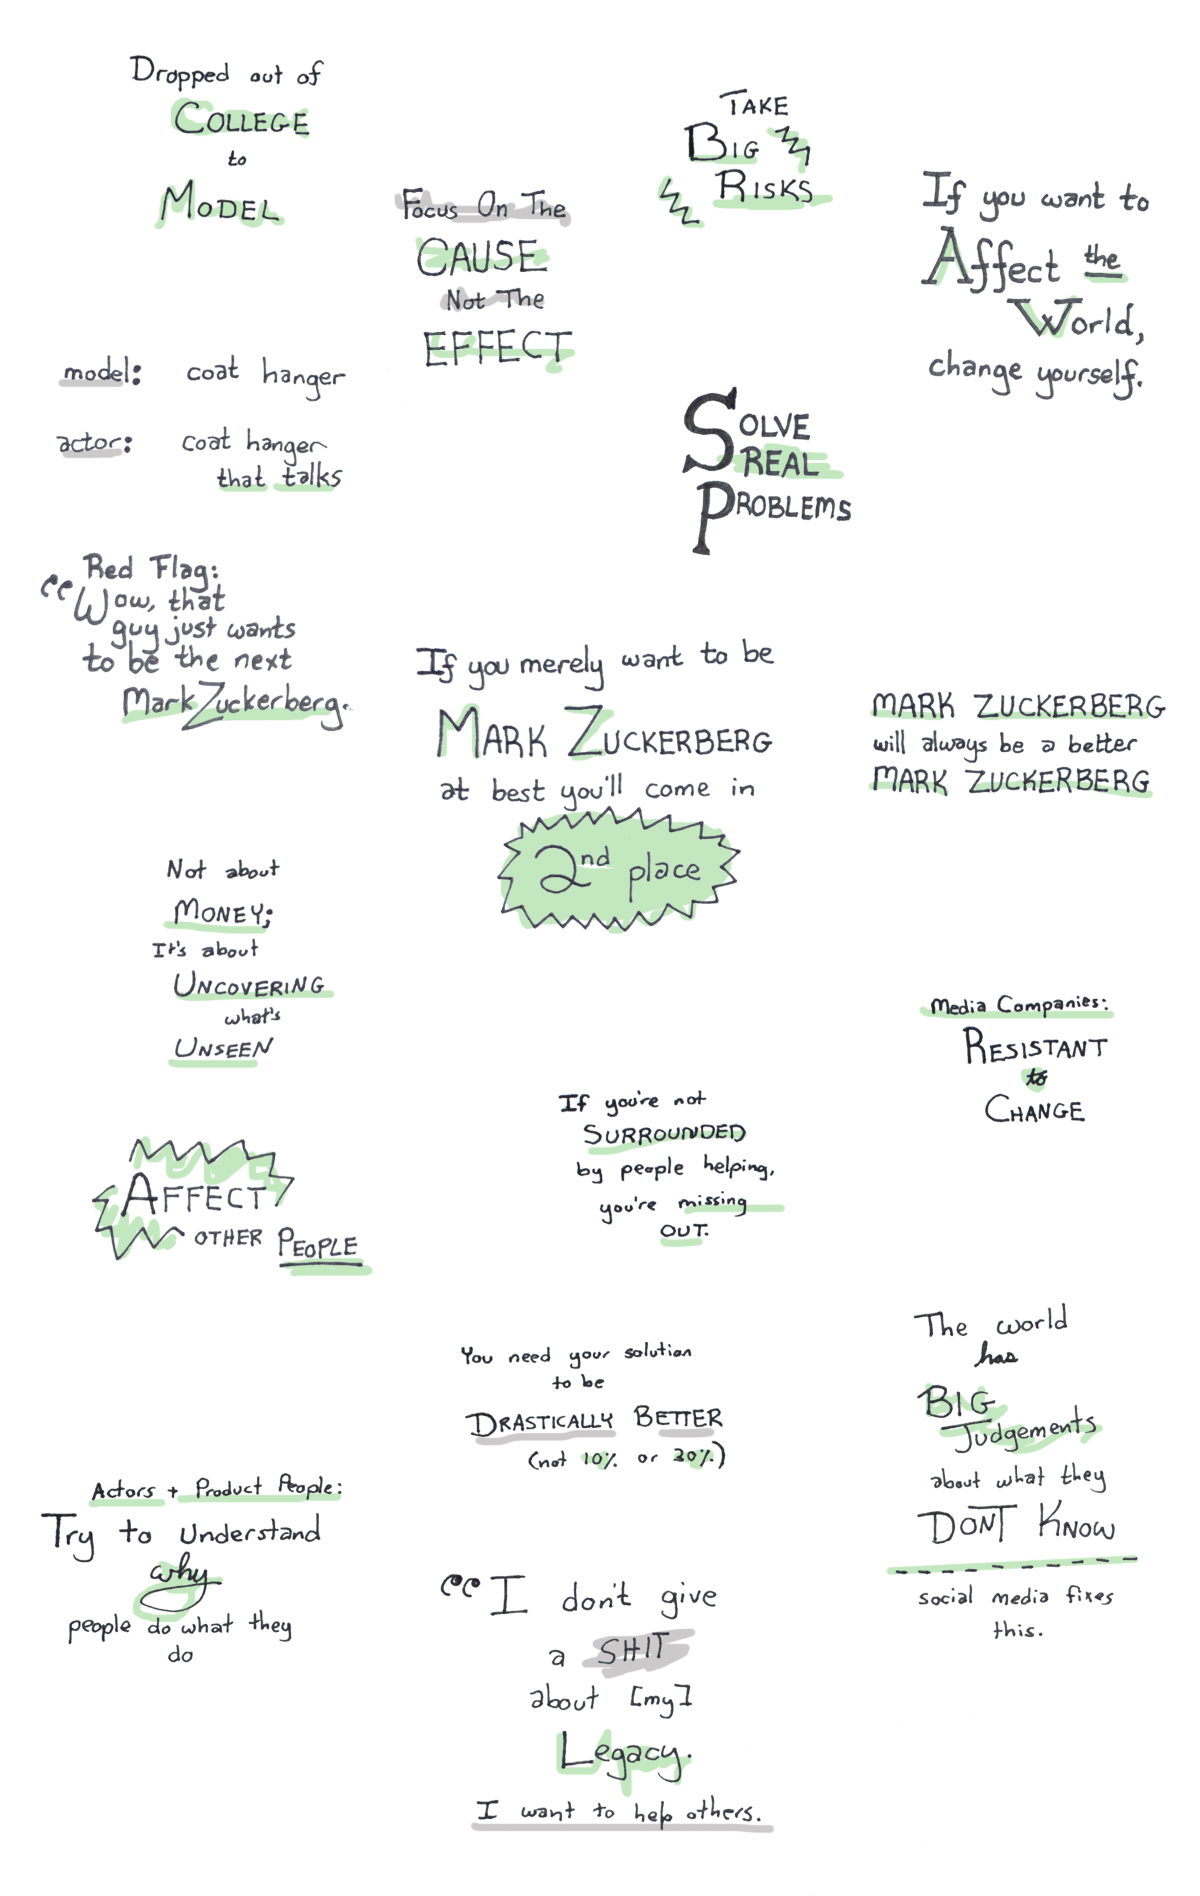 Dropped out of
COLLEGE
to
MODEL
Focus On The
CAUSE
Not The
EFFECT
TAKE
BIG
RISKS
If you want to
Affect the
World,
change yourself.
model: coat hanger
actor: coat hanger
that talks
SOLVE
REAL
PROBLEMS
Red Flag:
“Wow, that
guy just wants
to be the next
Mark Zuckerberg.
If you merely want to be
MARK ZUCKERBERG
at best you'll come in
2nd place
MARK ZUCKERBERG
will always be a better
MARK ZUCKERBERG
Not about
MONEY;
It's about
UNCOVERING
what's
UNSEEN
Media Companies:
RESISTANT
to
CHANGE
If you're not
SURROUNDED
by people helping,
you're missing
OUT.
AFFECT
OTHER PEOPLE
You need your solution
to be
DRASTICALLY BETTER
(not 10% or 20%)
The world
has
BIG
Judgements
about what they
DON'T KNOW
social media fixes
this.
Actors + Product People:
Try to understand
why
people do what they
do
“I don't give
a SHIT
about [my]
Legacy.
I want to help others.